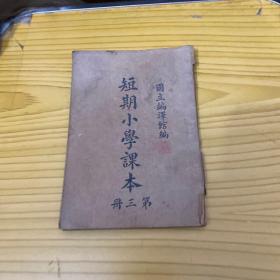 國立編譯館編
短期小學課本
第三冊